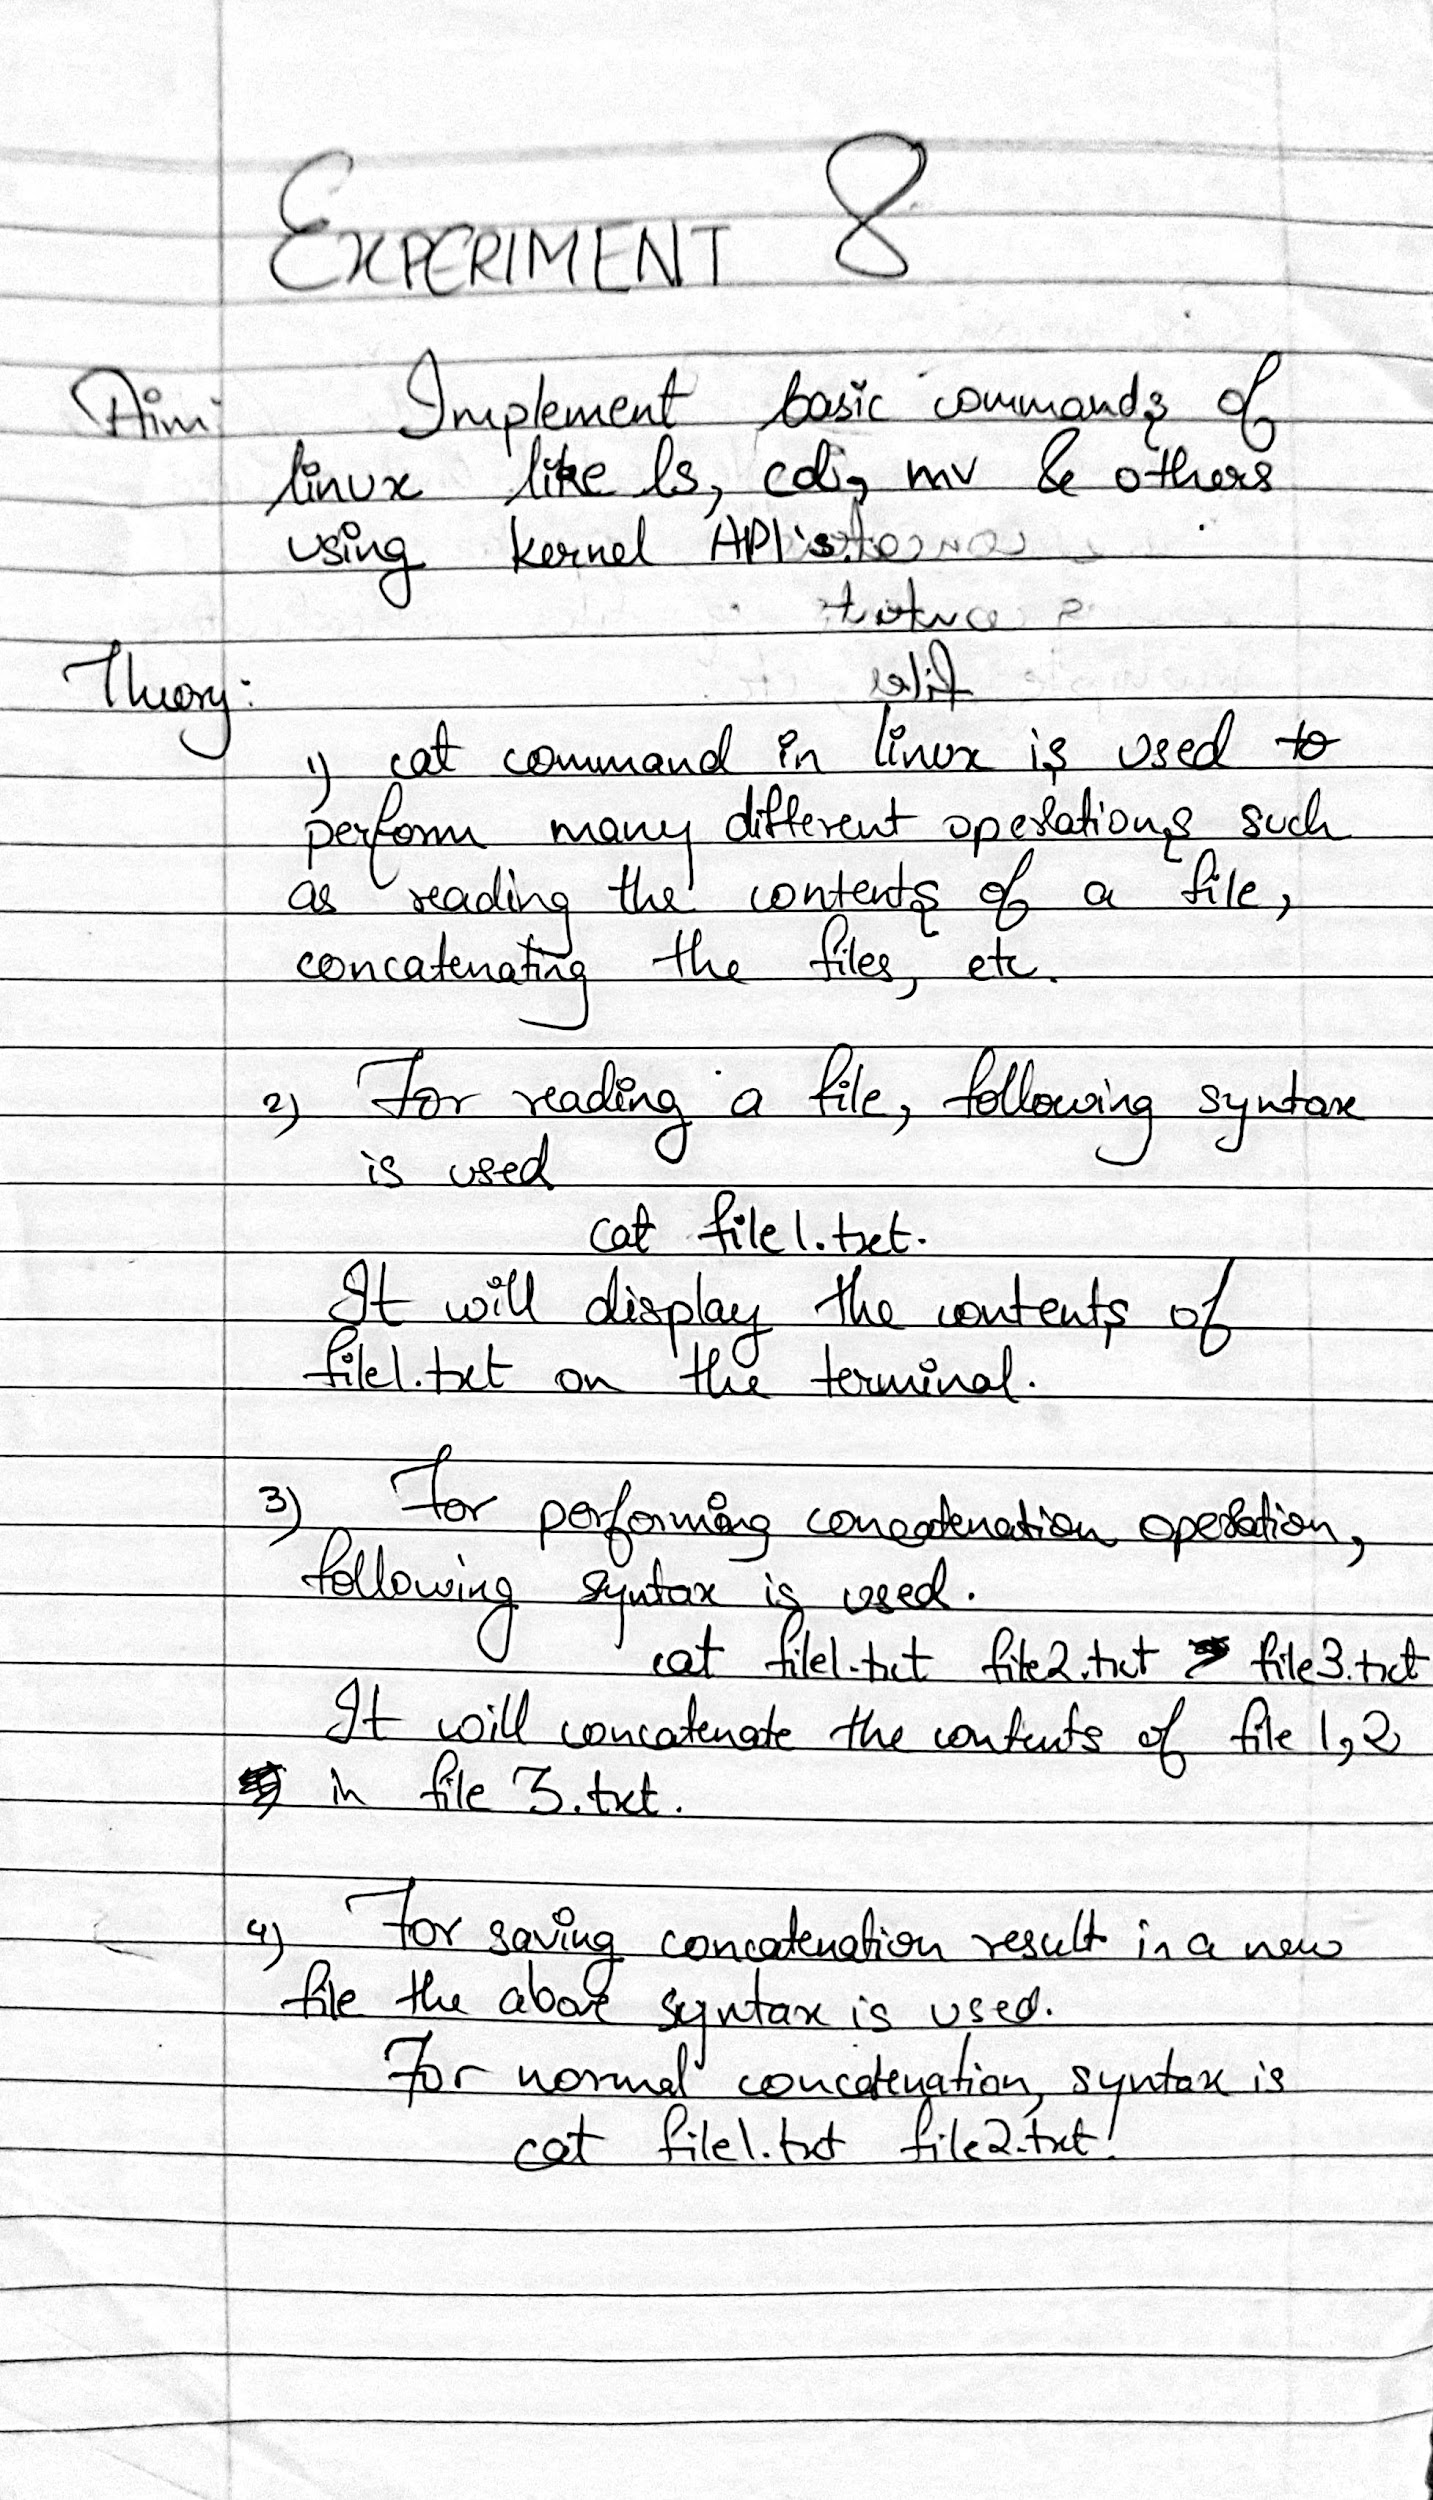 EXPERIMENT 8
Aim: Implement basic commands of
linux like ls, cdi, mv & others
using kernel API's.
Theory:
1) cat command in linux is used to
perform many different operations such
as reading the contents of a file,
concatenating the files, etc.
2) For reading a file, following syntax
is used
cat file1.txt.
It will display the contents of
file1.txt on the terminal.
3) For performing concatenation operation,
following syntax is used.
cat file1.txt file2.txt > file3.txt
It will concatenate the contents of file 1,2
in file 3.txt.
4) For saving concatenation result in a new
file the above syntax is used.
For normal concatenation, syntax is
cat file1.txt file2.txt